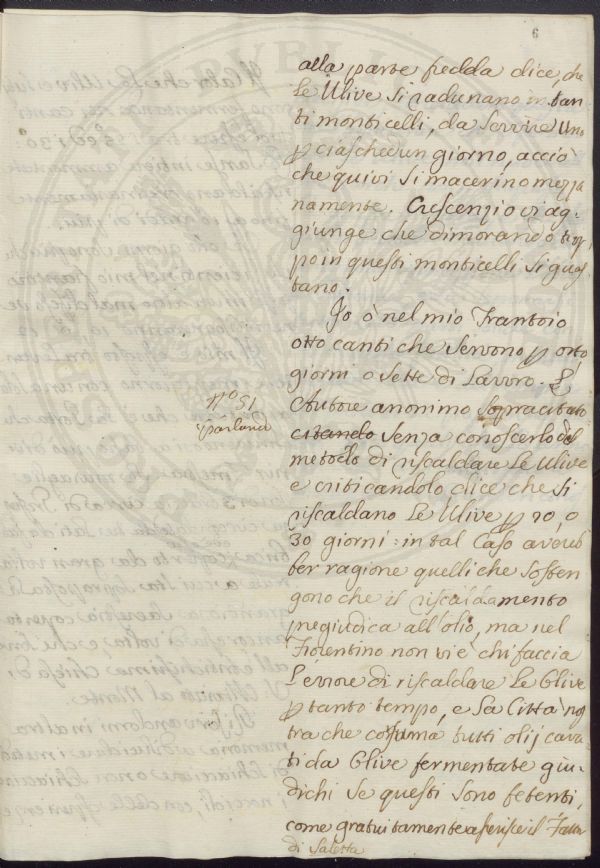 6
alla parte fredda dice, che
Le Ulive si radunano in tan
ti monticelli, da servire uno
p ciaschedun giorno, acciò
che quivi si macerino mezza
namente. Crescenzio vi ag
giunge che dimorando trop
po in questi monticelli si gua
stano.
Io ò nel mio Frantoio
otto canti che servono p otto
giorni o sette di Lavoro. L'
Autore anonimo sopracitato
citando senza conoscerlo del
metodo di riscaldare Le Ulive
e criticandolo dice che si
riscaldano Le Ulive p 20, o
30 giorni: in tal caso avereb
ber ragione quelli che sosten
gono che il riscaldamento
pregiudica all'olio, ma nel
Fiorentino non vi è chi faccia
l'errore di riscaldare Le Olive
p tanto tempo, e La Città nos
tra che costuma tutti olij cava
ti da Olive fermentate giu
dichi se questi sono fetenti,
come gratuitamente asserisce il
di Saletta
nº 51